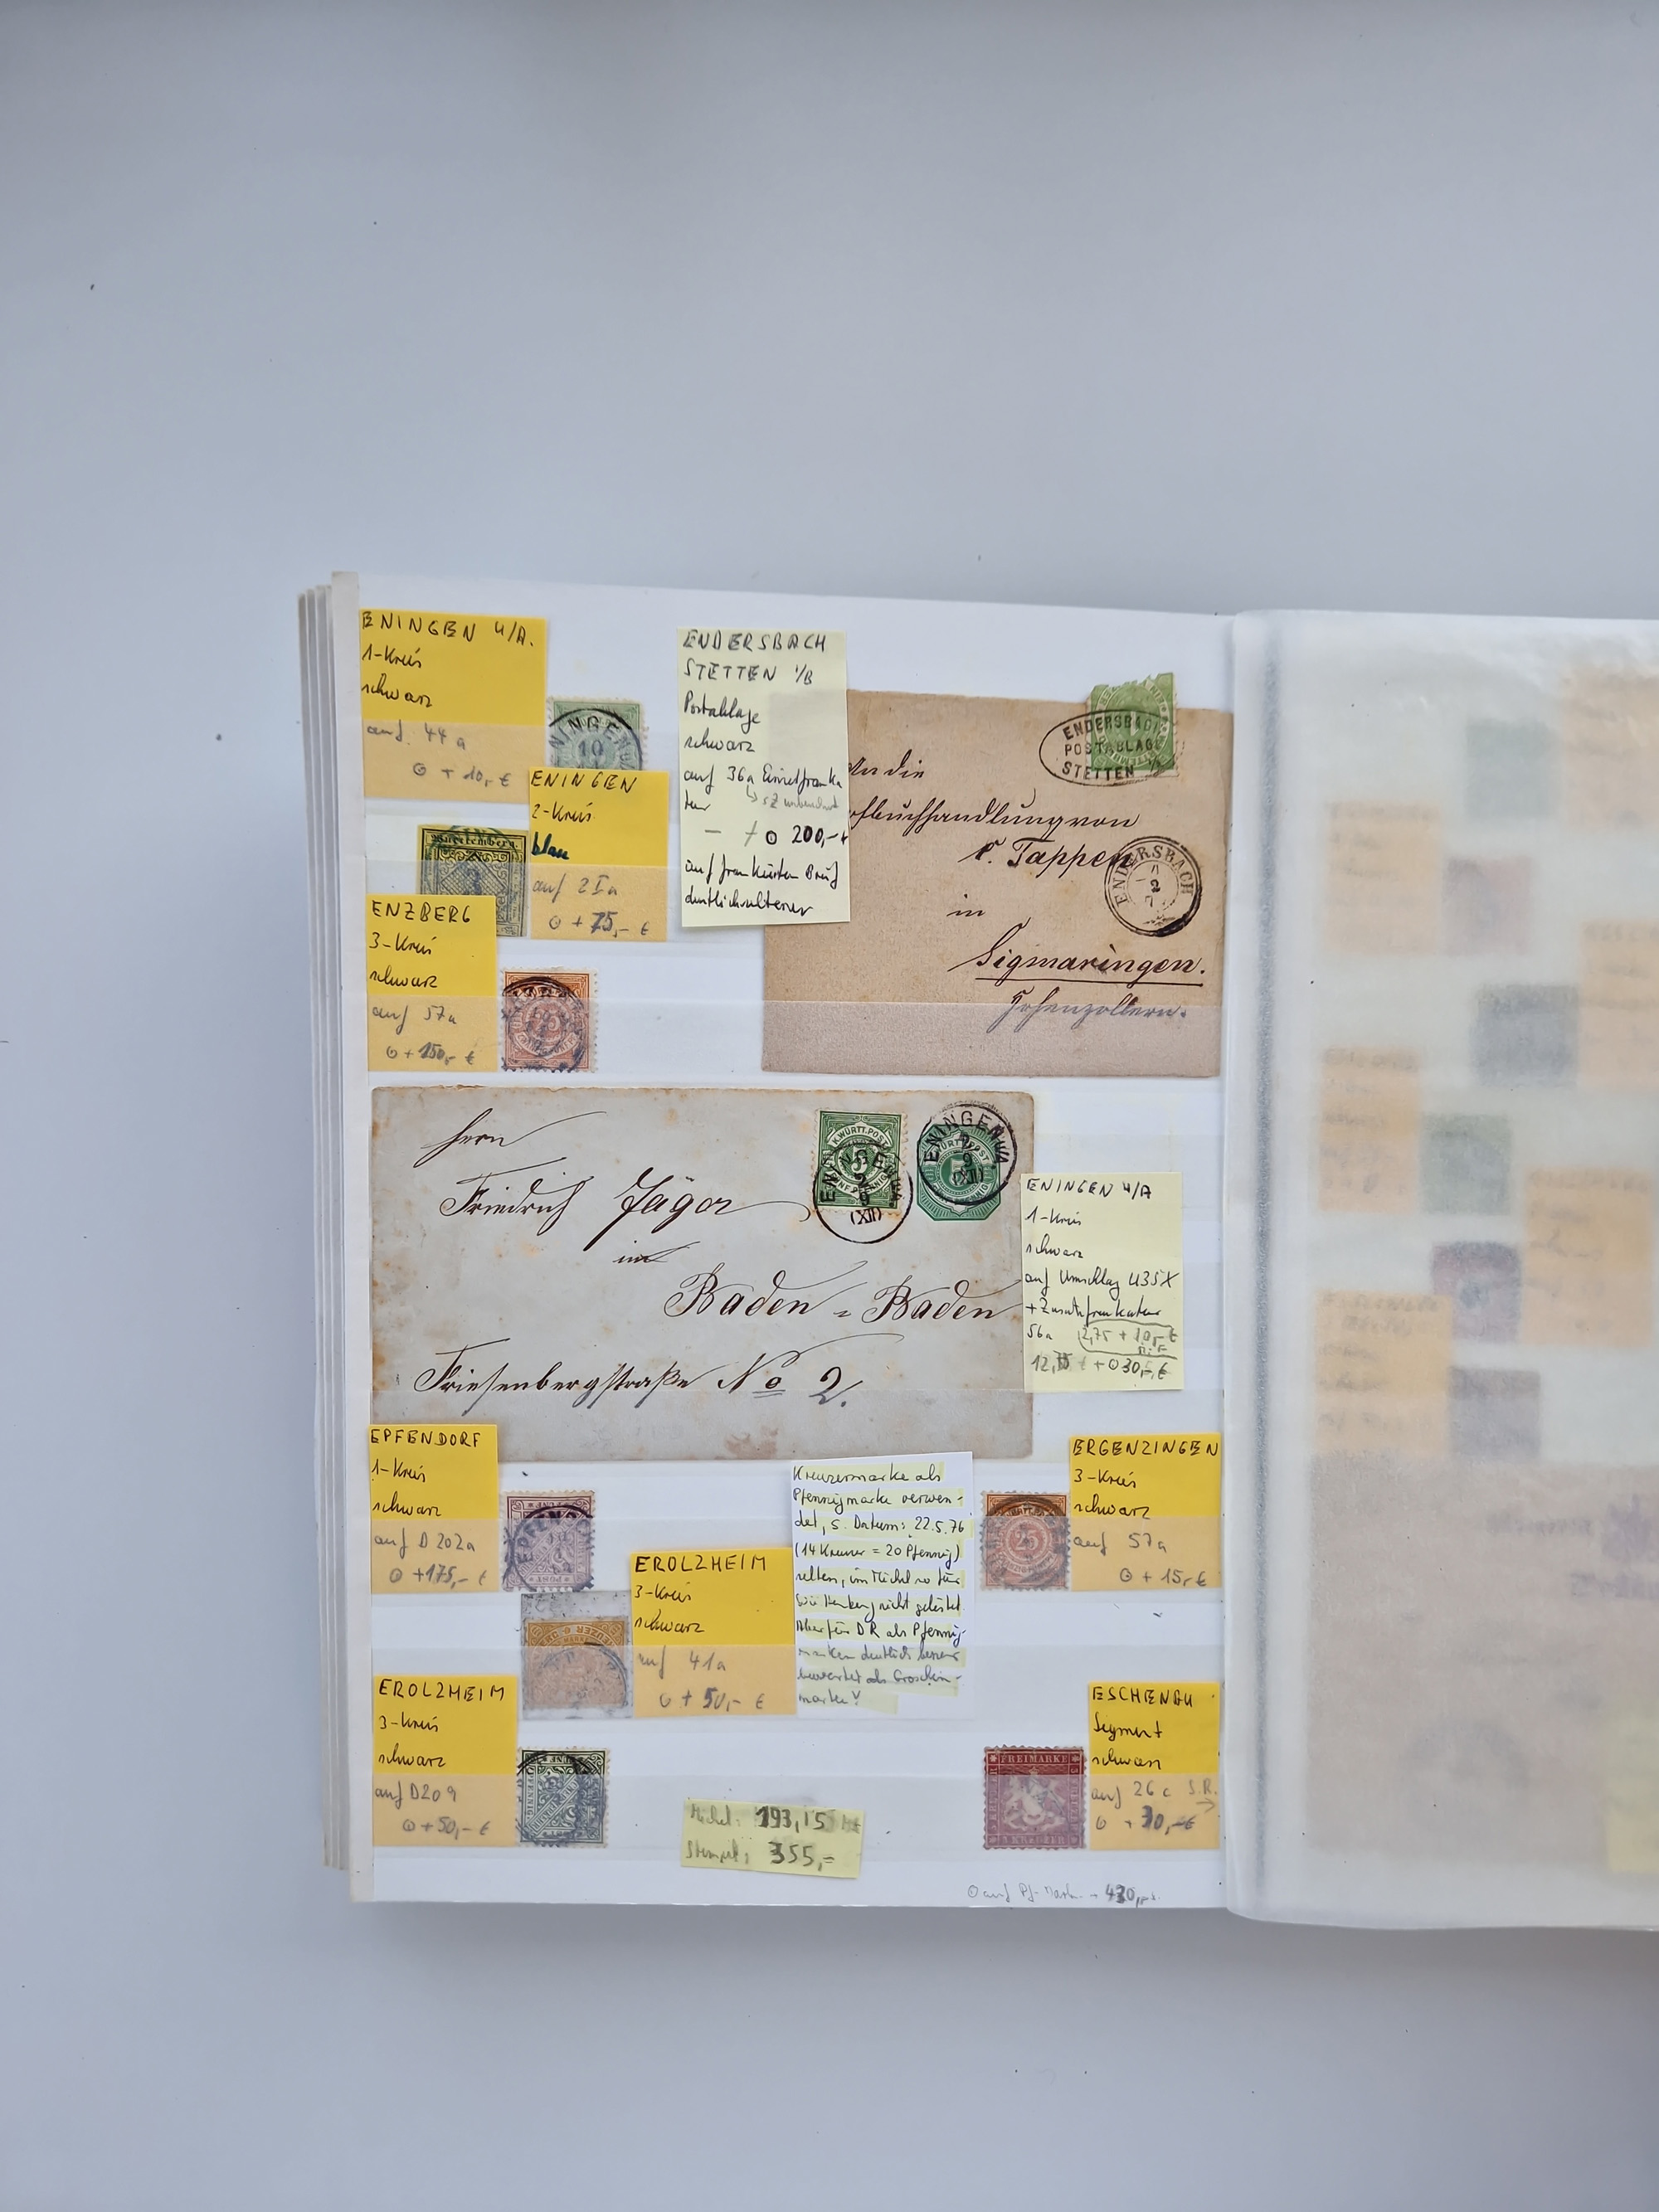 ENINGEN U/A.
1-Kreis
schwarz
auf 44 a
⊙ + 10,- €
NINGEN
10
ENINGEN
2-Kreis
blau
auf 2 I a
⊙ + 75,- €
Württemberg.
ENZBERG
3-Kreis
schwarz
auf 57a
⊙ + 150,- €
ENDERSBACH
STETTEN i/R
Postablage
schwarz
auf 36a Einzelfranka
tur
⊙ 200,-
auf frankiertem Brief
deutlich seltener
ENDERSBACH
POSTABLAGE
STETTEN
An die
ofbuchhandlung von
C. Tappen
in
Sigmaringen.
Hohenzollern.
ENDERSBACH
Herrn
Friedrich Jäger
in
Baden = Baden
Friesenbergstraße No 2.
K.WÜRTT.POST
5
ENINGEN U/A
2
9
(XII)
ENINGEN U/A
9
(XII)
ENINGEN U/A
1-Kreis
schwarz
auf Umschlag U35X
+ Zusatzfrankatur
56a (2,75 + 10,- €
12,75 € + ⊙ 30,- €
EPFENDORF
1-Kreis
schwarz
auf D 202a
⊙ + 175,- €
EROLZHEIM
3-Kreis
schwarz
auf 41a
⊙ + 50,- €
Kreuzermarke als
Pfennigmarke verwen-
det, s. Datum: 22.5.76
(14 Kreuzer = 20 Pfennig)
selten, im Michel so für
Württemberg nicht gelistet
Aber für DR als Pfennig-
marken deutlich besser
bewertet als Groschen-
marke!
ERGENZINGEN
3-Kreis
schwarz
auf 57a
⊙ + 15,- €
25
EROLZHEIM
3-Kreis
schwarz
auf D209
⊙ + 50,- €
Michel: 193,15
Stempel: 355,-
FREIMARKE
KREUZER
ESCHENAU
Segment
schwarz
auf 26 c S.R.
⊙ + 30,- €
⊙ auf Pf-Mark. → 430,-